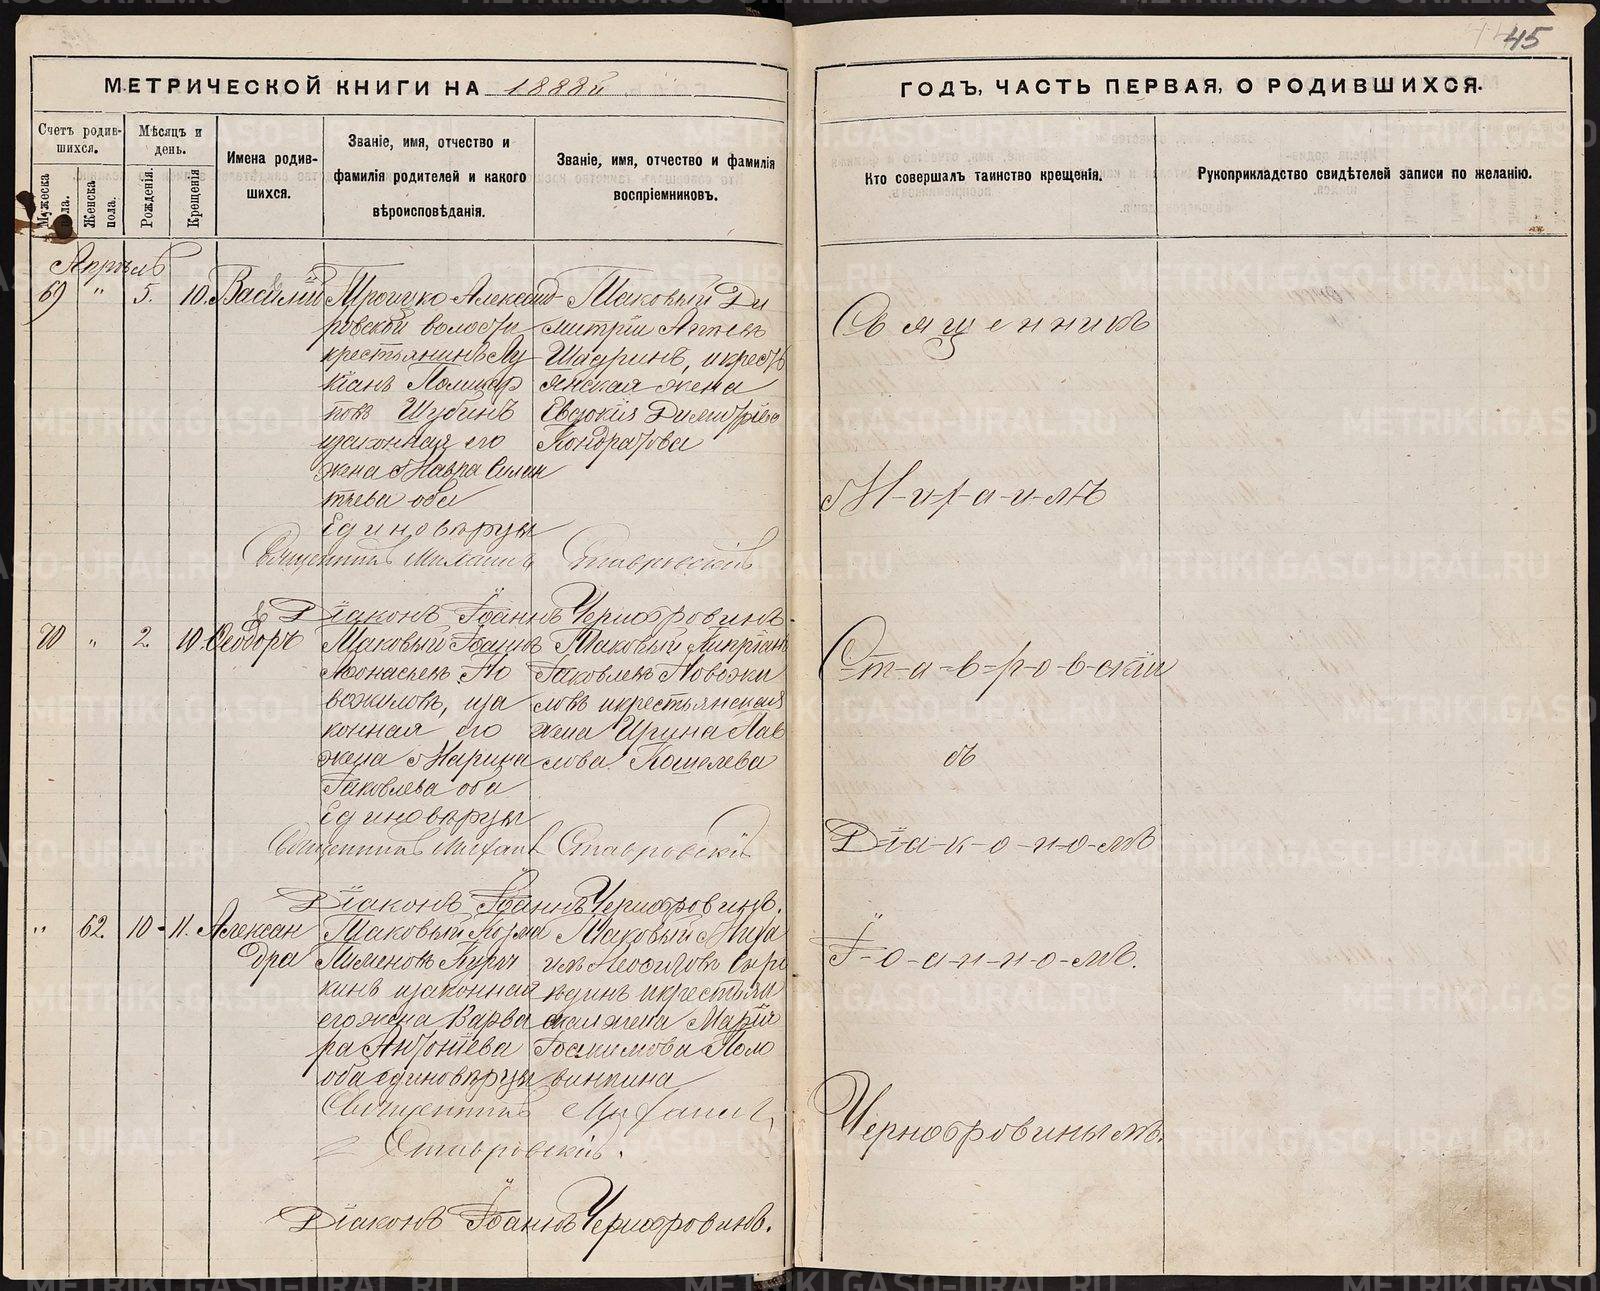 45
МЕТРИЧЕСКОЙ КНИГИ НА 1888й
ГОДЪ, ЧАСТЬ ПЕРВАЯ, О РОДИВШИХСЯ.
Счетъ родив-
шихся.
Мужеска
пола.
Женска
пола.
Мѣсяцъ и
день.
Рожденія.
Крещенія
Имена родив-
шихся.
Званіе, имя, отчество и
фамилія родителей и какого
вѣроисповѣданія.
Званіе, имя, отчество и фамилія
воспріемниковъ.
Кто совершалъ таинство крещенія.
Рукоприкладство свидѣтелей записи по желанію.
Апрѣль
69 " 5. 10. Василій
Троицко Александ
ровской волости
крестьянинъ Лу
кіанъ Поликар
повъ Шубинъ
изаконная его
жена Мавра Силан
тьева оба
Единовѣрцы
Таковый Ди
митрій
Шаринъ, и крестъ
янская жена
Евдокія Димитріева
Кондратова
Священникъ Михаилъ Ставровскій
Діаконъ Іоаннъ Чернобровинъ.
70 " 2. 10. Ѳеодоръ
Таковый Іоаннъ
Аѳонасьевъ Но
вожиловъ, иза
конная его
жена Марина
Іаковлева оба
Единовѣрцы
Таковый Кипріанъ
Іаковлевъ Новожи
ловъ икрестьянская
жена Ирина Пав
лова Кошелева
Священникъ Михаилъ Ставровскій
Діаконъ Іоаннъ Чернобровинъ.
" 62. 10 - 11. Александра
Таковый Козма
Пименовъ
кинъ изаконная
его жена Варва
ра Антоніева
оба единовѣрцы
Таковый Миха
илъ Сыро
ѣдинъ икрестьян
ская жена Марія
Іоакимова Поло
винкина
Священникъ Михаилъ
Ставровскій.
Діаконъ Іоаннъ Чернобровинъ.
Священникъ
М-и-х-а-и-лъ
С-т-а-в-р-о-в-скій
съ
Д-іа-к-о-н-о-мъ
І-о-а-н-н-о-мъ.
Чернобровинымъ.